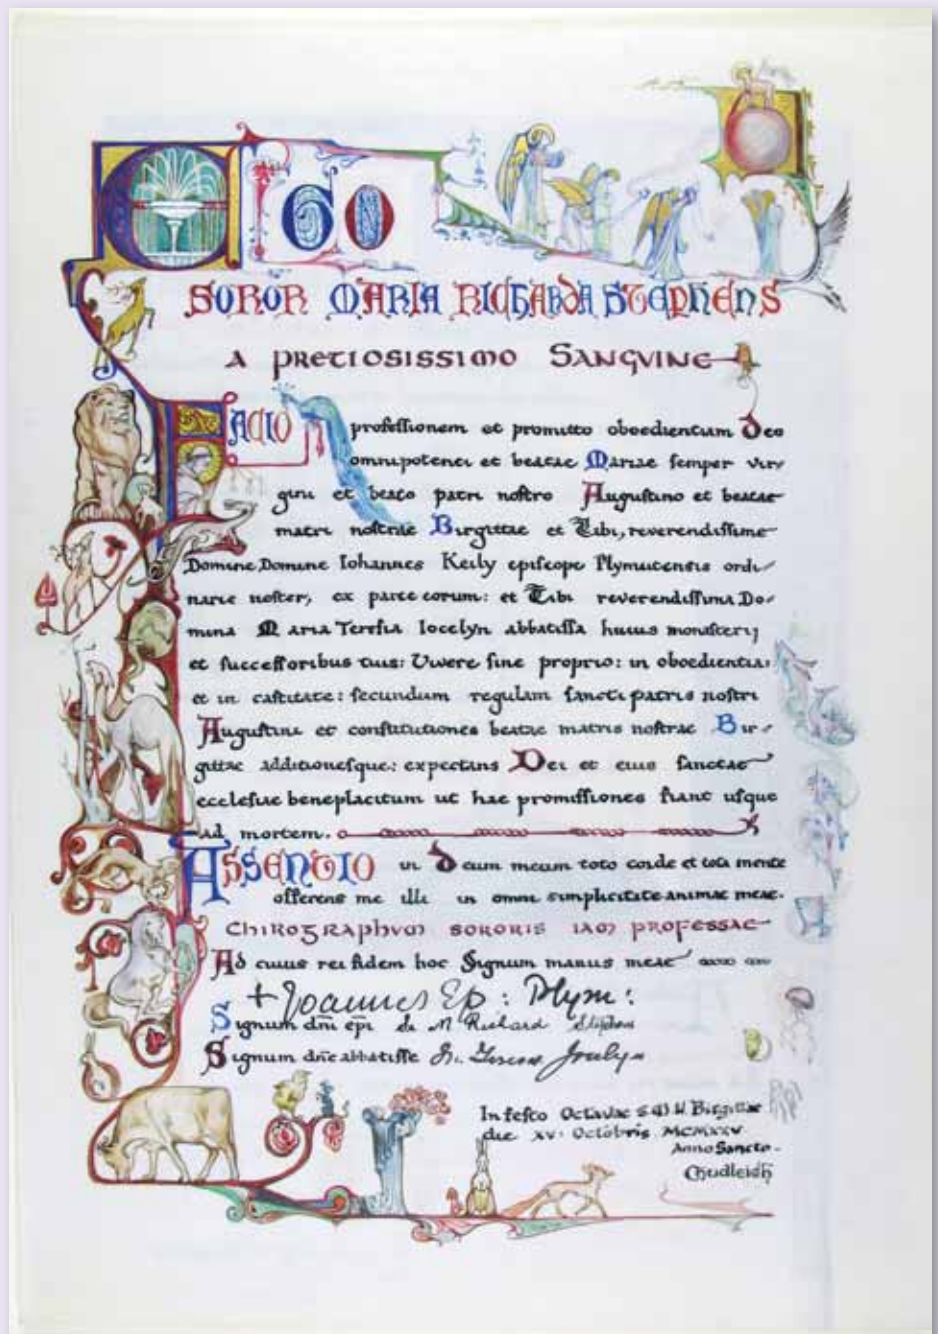 Ego
SOROR MARIA RICHARDA STEPHENS
A PRETIOSISSIMO SANGVINE
FACIO professionem et promitto oboedientiam Deo
omnipotenti et beatae Mariae semper vir-
gini et beato patri nostro Augustino et beatae
matri nostrae Birgittae et Tibi, reverendissime
Domine, Domine Iohannes Keily episcope Plymutensis ordi-
narie noster, ex parte eorum: et Tibi reverendissima Do-
mina Maria Teresia Iocelyn abbatissa huius monasterij
et successoribus tuis: Vivere sine proprio: in oboedientia:
et in castitate: secundum regulam sancti patris nostri
Augustini et constitutiones beatae matris nostrae Bir-
gittae additionesque: expectans Dei et eius sanctae
ecclesiae beneplacitum ut hae promissiones fiant usque
ad mortem.
ASSENTIO in Deum meum toto corde et tota mente
offerens me illi in omni simplicitate animae meae.
CHIROGRAPHVM SORORIS IAM PROFESSAE
Ad cuius rei fidem hoc Signum manus meae
+ Joannes Ep: Plym:
Signum dñi epi Sr M Richard Stephens
Signum dñe abbatisse Sr. Teresa Jocelyn
In festo Octavae S.M.N. Birgittae
die XV. Octobris MCMXXV
Anno Sancto-
Chudleigh